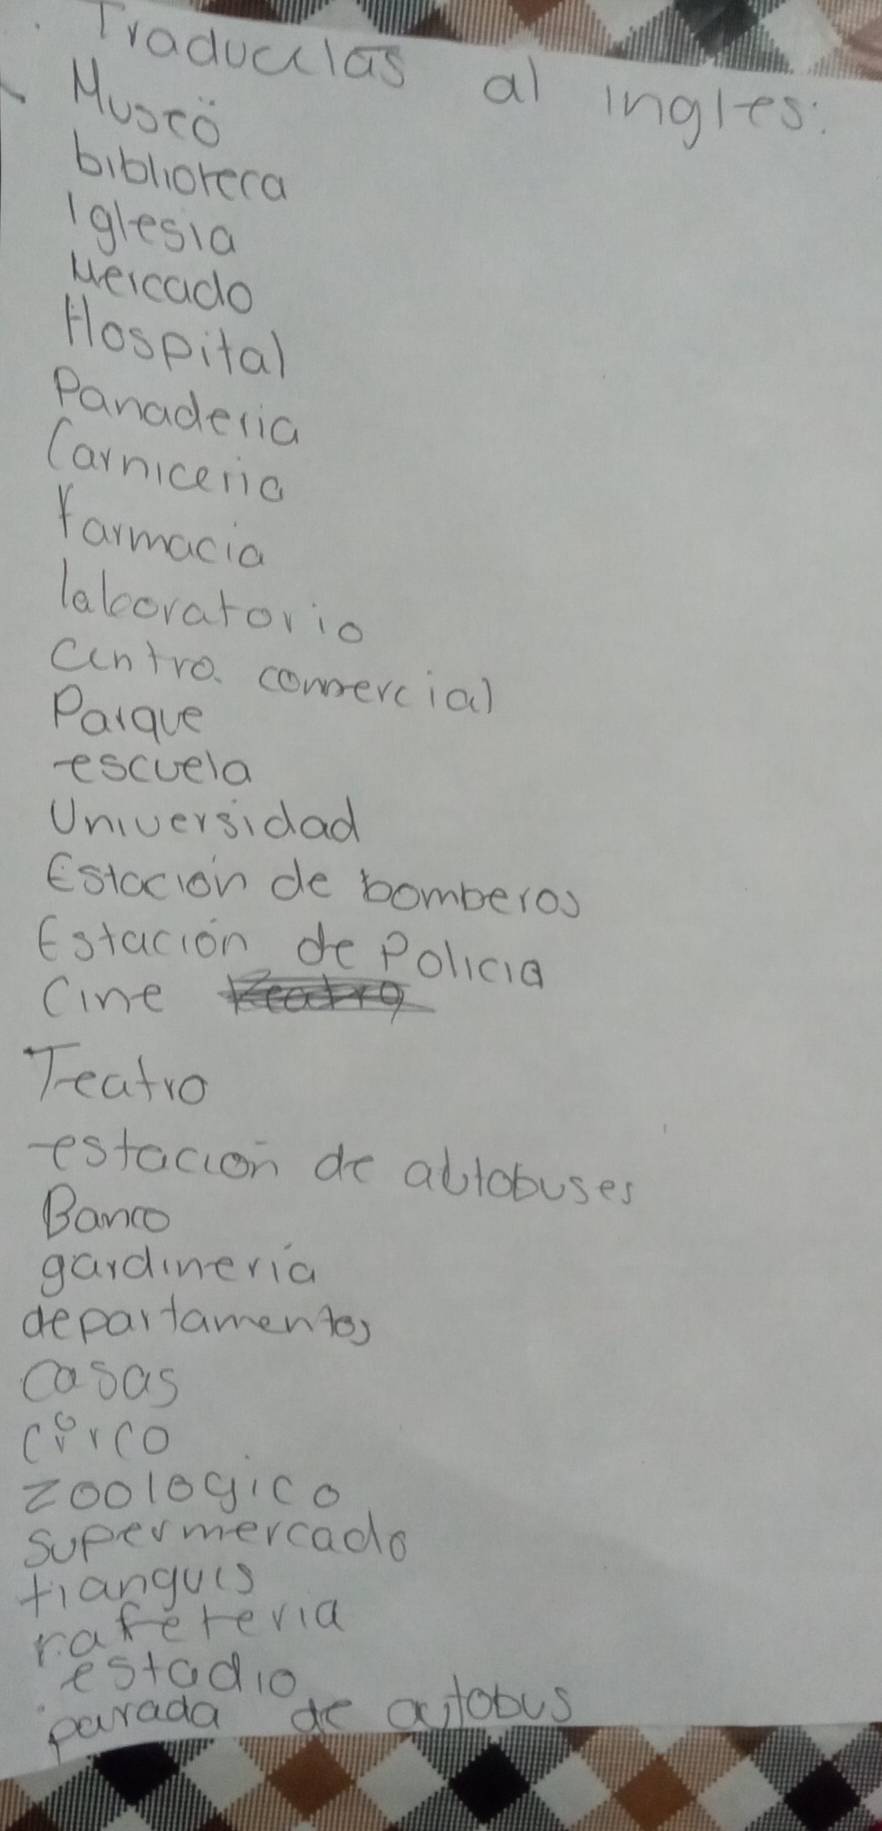 Traducelas al ingles:
Museo
biblioteca
Iglesia
Mercado
Hospital
Panaderia
Carniceria
Farmacia
laboratorio
Centro comercial
Parque
escuela
Universidad
Estación de bomberos
Estación de Policia
Cine
Teatro
estación de autobuses
Banco
gardineria
departamentos
casas
circo
zoologico
supermercado
tianguis
cafeteria
estadio
parada de autobus